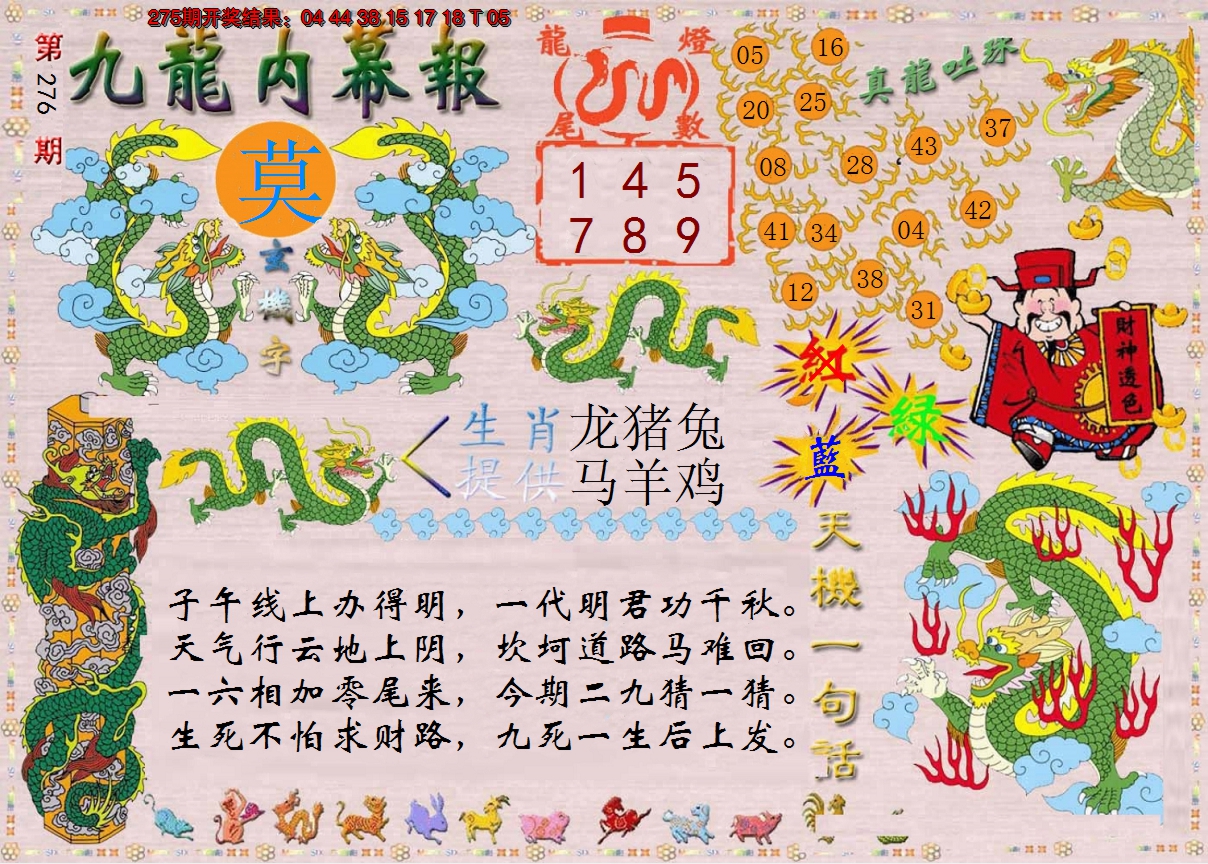 275期开奖结果：04 44 38 15 17 18 T 05
第276期
九龍内幕報
莫
玄機字
龍燈尾數
1 4 5
7 8 9
真龍吐珠
05 16
20 25
43 37
08 28
42
41 34 04
38
12 31
財神透色
紅
綠
藍
生肖提供
龙猪兔
马羊鸡
天機一句話
子午线上办得明，一代明君功千秋。
天气行云地上阴，坎坷道路马难回。
一六相加零尾来，今期二九猜一猜。
生死不怕求财路，九死一生后上发。